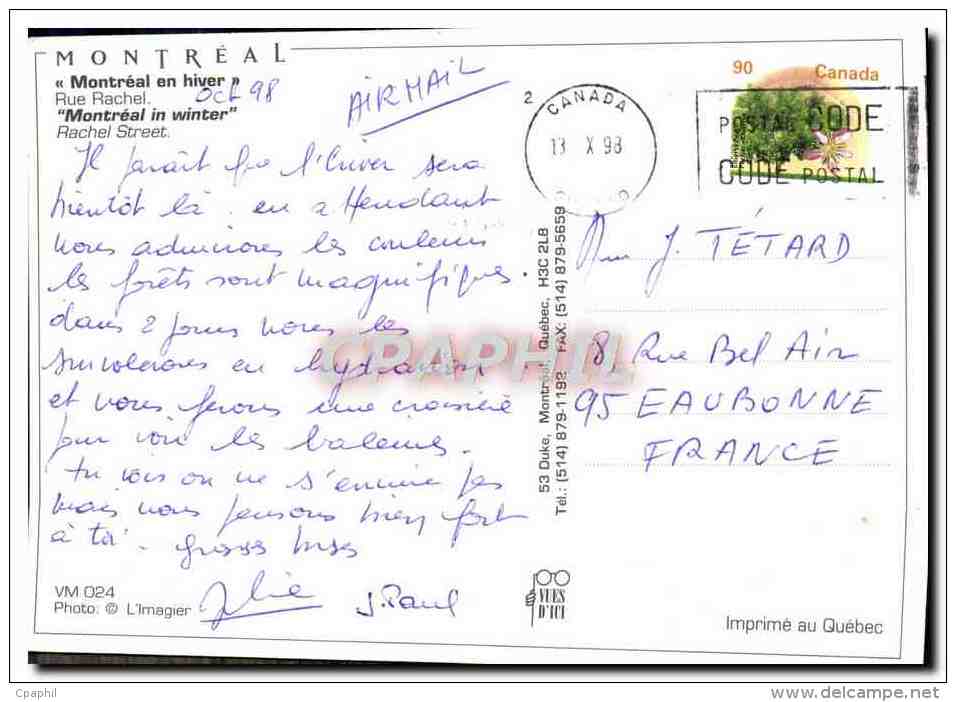 MONTRÉAL
« Montréal en hiver »
Rue Rachel. Oct 98
"Montréal in winter"
Rachel Street.
AIRMAIL
Il paraît que l'hiver sera
bientôt là. en attendant
nous admirons les couleurs
les forêts sont magnifiques.
dans 2 jours nous les
survolerons en hydravion
et nous ferons une croisière
pour voir les baleines.
tu vois on ne s'ennuie pas
mais nous pensons bien fort
à toi. grosses bises
J. Paul
VM 024
Photo: © L'Imagier
53 Duke, Montréal, Québec, H3C 2L8
Tél.: (514) 879-1192 FAX: (514) 879-5659
VUES
D'ICI
90 Canada
2
CANADA
13 X 98
POSTAL CODE
CODE POSTAL
J. TÉTARD
8, Rue Bel Air
95 EAUBONNE
FRANCE
Imprimé au Québec
CPAPHIL
Cpaphil
delcampe.net